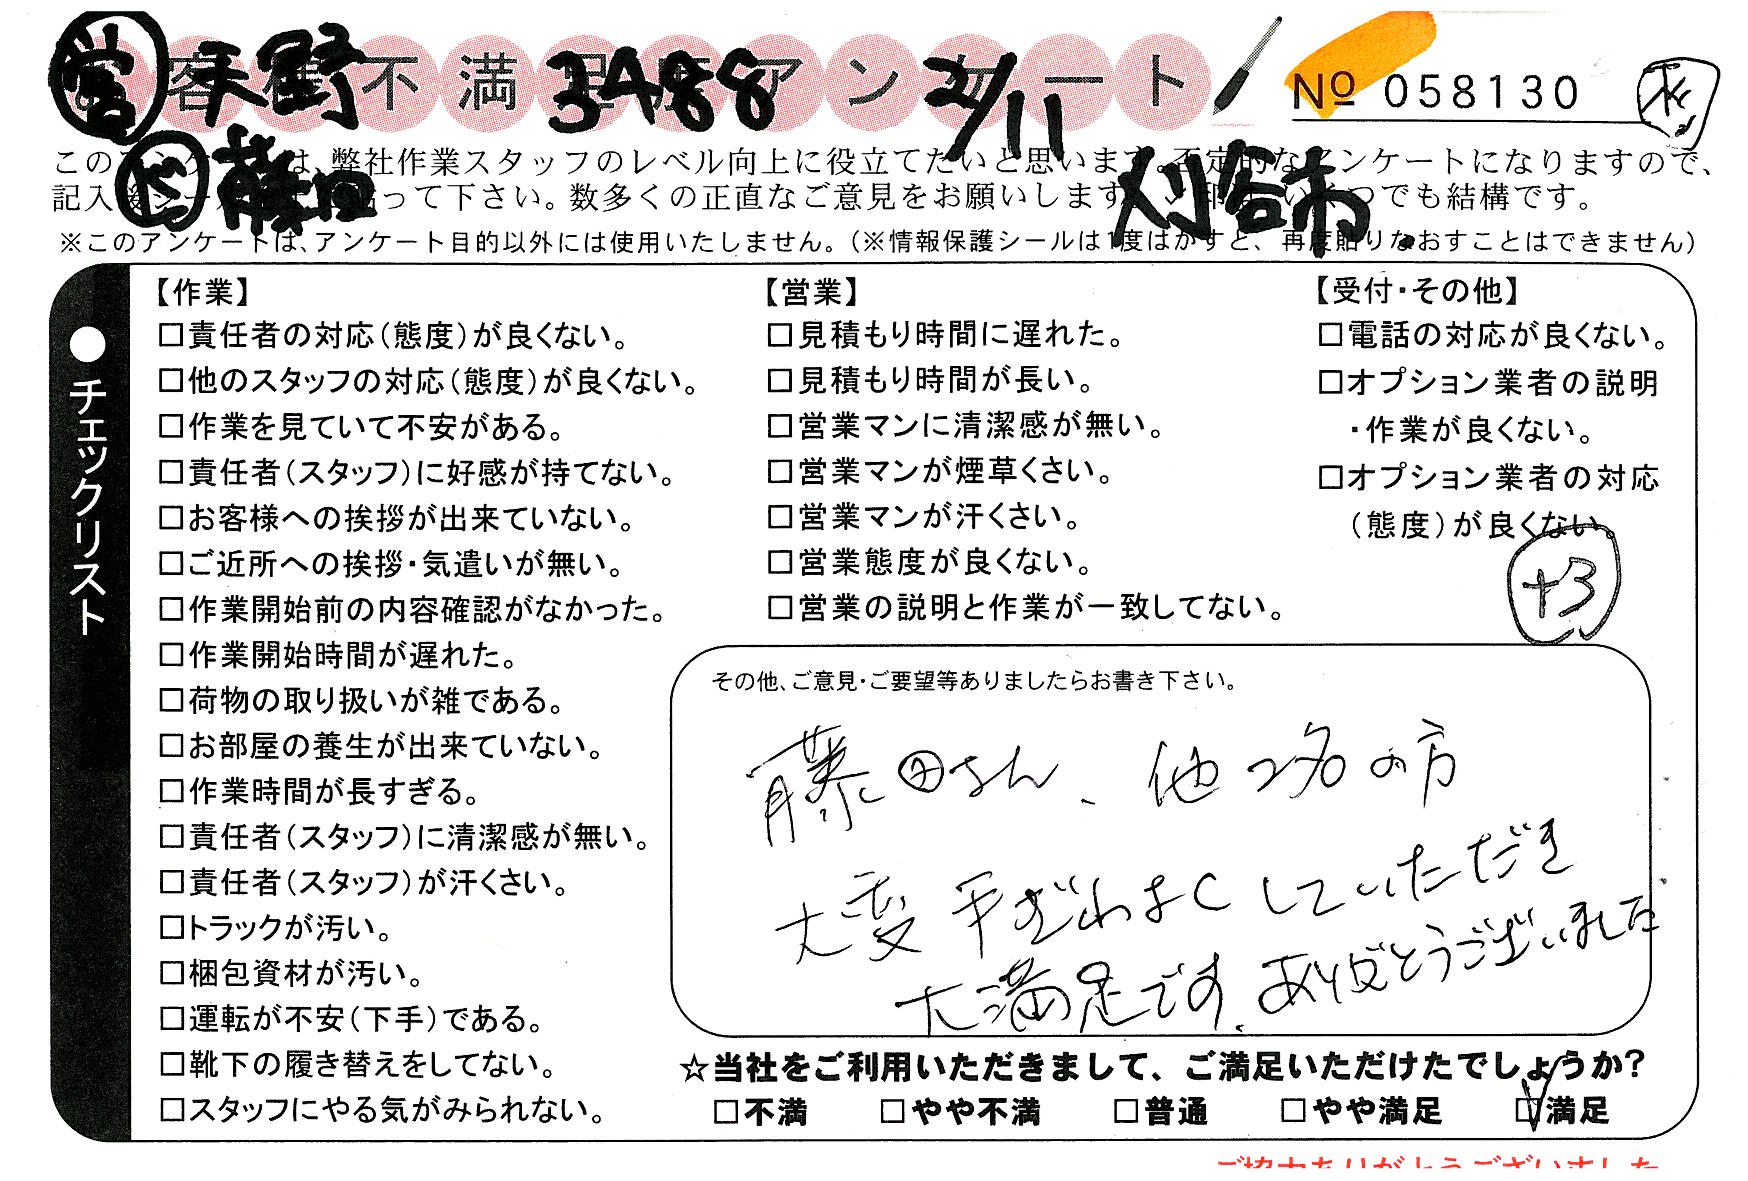 お客様不満足度アンケート
No 058130
営 天野 3488 2/11
ド 藤田
刈谷市
このアンケートは、弊社作業スタッフのレベル向上に役立てたいと思います。否定的なアンケートになりますので、
記入後シールを貼って下さい。数多くの正直なご意見をお願いします いくつでも結構です。
※このアンケートは、アンケート目的以外には使用いたしません。(※情報保護シールは1度はがすと、再度貼りなおすことはできません)
●チェックリスト
【作業】
□責任者の対応(態度)が良くない。
□他のスタッフの対応(態度)が良くない。
□作業を見ていて不安がある。
□責任者(スタッフ)に好感が持てない。
□お客様への挨拶が出来ていない。
□ご近所への挨拶・気遣いが無い。
□作業開始前の内容確認がなかった。
□作業開始時間が遅れた。
□荷物の取り扱いが雑である。
□お部屋の養生が出来ていない。
□作業時間が長すぎる。
□責任者(スタッフ)に清潔感が無い。
□責任者(スタッフ)が汗くさい。
□トラックが汚い。
□梱包資材が汚い。
□運転が不安(下手)である。
□靴下の履き替えをしてない。
□スタッフにやる気がみられない。
【営業】
□見積もり時間に遅れた。
□見積もり時間が長い。
□営業マンに清潔感が無い。
□営業マンが煙草くさい。
□営業マンが汗くさい。
□営業態度が良くない。
□営業の説明と作業が一致してない。
【受付・その他】
□電話の対応が良くない。
□オプション業者の説明
・作業が良くない。
□オプション業者の対応
(態度)が良くない。
+3
その他、ご意見・ご要望等ありましたらお書き下さい。
藤田さん、他2名の方
大変手ぎわよくしていただき
大満足です。ありがとうございました
☆当社をご利用いただきまして、ご満足いただけたでしょうか?
□不満 □やや不満 □普通 □やや満足 ☑満足
ご協力ありがとうございました